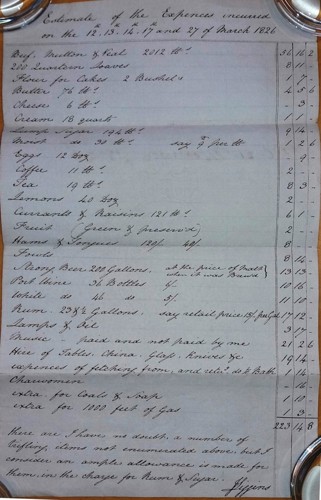 Estimate of the Expences incurred
on the 12. 13. 14. 17 and 27 of March 1826
Beef, Mutton & Veal 2012 lbs 36 16 2
200 Quartern Loaves 8 11 -
Flour for Cakes 2 Bushels 1 7 -
Butter 76 lbs 4 5 6
Cheese 6 lbs - 3 -
Cream 18 quarts 1 11 -
Lump Sugar 194 lbs 9 14
Moist do 30 lbs say 9 per lb 1 2 6
Eggs 12 Doz - 9 -
Coffee 11 lbs
Tea 19 lbs 8 3 -
Lemons 40 Doz 2 -
Currants & Raisins 121 lbs 6 1 -
Fruit (Green & preserved) 2 -
Hams & Tongues 120/- 40/- 8 -
Fowls 8 14
Strong Beer 200 Gallons. at the price of malt when it was Brewed 13 13 -
Port Wine 36 Bottles 6/- 10 16
White do 46 do 5/- 11 10
Rum 23 Gallons. say retail price 17 12
Lamps & Oil 3 17
Music - paid and not paid by me 21 2 6
Hire of Tables, China, Glass, Knives &c 19 14
expences of fetching from, and retg. do to Bath 1 14
Charwomen - 16
extra for Coals & Soap 1 10
extra for 1000 feet of Gas 1 3
223 14 8
there are I have no doubt, a number of
trifling items not enumerated above but I
consider an ample allowance is made for
them, in the charge for Rum & Sugar.